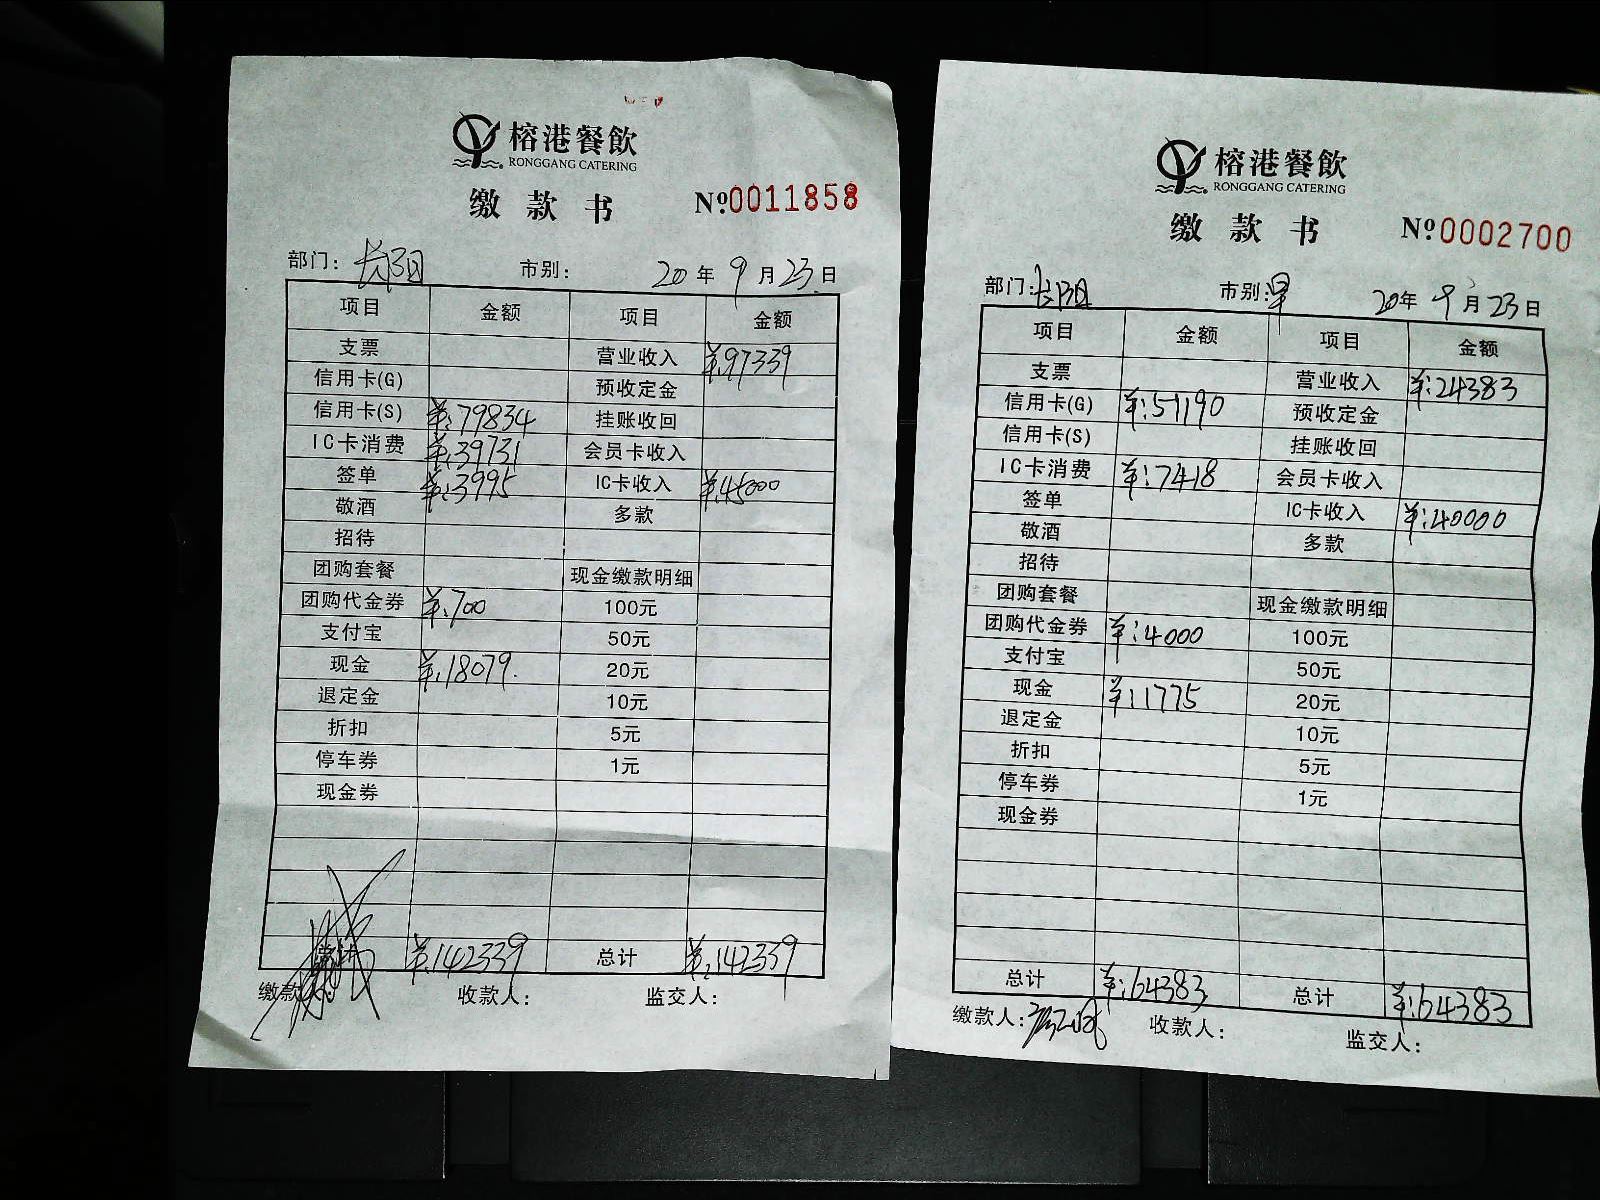 榕港餐飲
RONGGANG CATERING
缴款书 №0011858
部门: 长阳 市别: 20年9月23日
项目 金额 项目 金额
支票 营业收入 ¥:97339
信用卡(G) 预收定金
信用卡(S) ¥:79834 挂账收回
IC卡消费 ¥:39731 会员卡收入
签单 ¥:3995 IC卡收入 ¥:45000
敬酒 多款
招待
团购套餐 现金缴款明细
团购代金券 ¥:700 100元
支付宝 50元
现金 ¥:18079. 20元
退定金 10元
折扣 5元
停车券 1元
现金券
总计 ¥:142339 总计 ¥:142339
缴款人: 收款人: 监交人:
榕港餐飲
RONGGANG CATERING
缴款书 №0002700
部门: 长阳 市别: 早 20年9月23日
项目 金额 项目 金额
支票 营业收入 ¥:24383
信用卡(G) ¥:51190 预收定金
信用卡(S) 挂账收回
IC卡消费 ¥:7418 会员卡收入
签单 IC卡收入 ¥:40000
敬酒 多款
招待
团购套餐 现金缴款明细
团购代金券 ¥:4000 100元
支付宝 50元
现金 ¥:1775 20元
退定金 10元
折扣 5元
停车券 1元
现金券
总计 ¥:64383 总计 ¥:64383
缴款人: 收款人: 监交人: